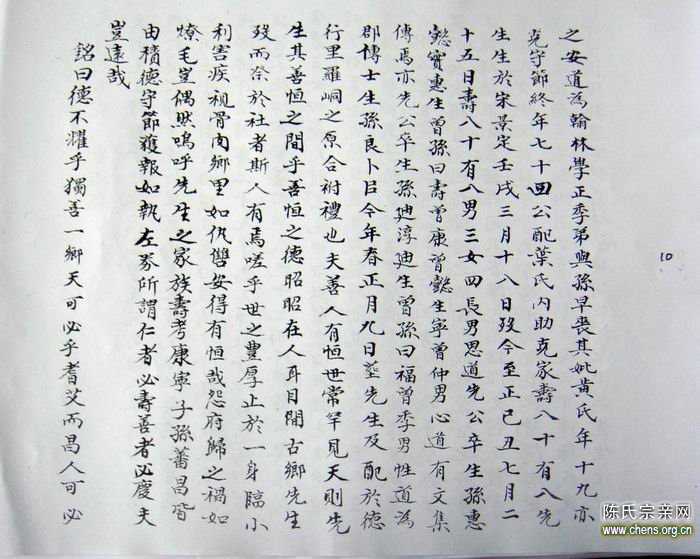 之安道為翰林學正季弟與孫早喪其妣黃氏年十九亦
堯守節終年七十回公配葉氏內助克家壽八十有八先
生生於宋景定壬戌三月十八日歿今至正己丑七月二
十五日壽八十有八男三女四長男思道先公卒生孫惠
懿寶惠生曾孫曰壽曾康曾懿生寧曾仲男心道有文集
傳焉亦先公卒生孫迪淳迪生曾孫曰福曾季男性道為
郡博士生孫良卜㠯今年春正月九日塟先生及配於德
行里羅峒之原合祔禮也夫善人有恒世常罕見天則先
生其善恒之間乎吾恒之德昭昭在人耳目閒古鄉先生
歿而祭於社者斯人有焉嗟乎世之豐厚止於一身臨小
利害疾視骨肉鄉里如仇雙安得有恒哉怨府歸之禍如
燎毛豈偶然嗚呼先生之家族壽考康寧子孫蕃昌皆
由積德守節獲報如執左券所謂仁者必壽善者必慶夫
豈遠哉
銘曰德不耀乎獨善一鄉天可必乎耆艾而昌人可必
10
陈氏宗亲网
www.chens.org.cn